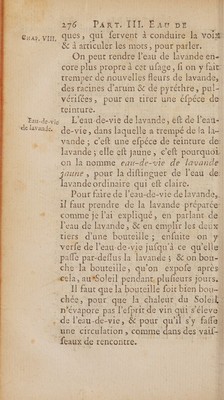 276 PART. III. EAU DE
CHAP. VIII.
ques, qui servent à conduire la voix
& à articuler les mots, pour parler.
On peut rendre l'eau de lavande en-
core plus propre à cet usage, si on y fait
tremper de nouvelles fleurs de lavande,
des racines d'arum & de pyréthre, pul-
vérisées, pour en tirer une éspéce de
teinture.
Eau-de-vie
de lavande.
L'eau-de-vie de lavande, est de l'eau-
de-vie, dans laquelle a trempé de la la-
vande ; c'est une espéce de teinture de
lavande ; elle est jaune, c'est pourquoi
on la nomme eau-de-vie de lavande
jaune, pour la distinguer de l'eau de
lavande ordinaire qui est claire.
Pour faire de l'eau-de-vie de lavande,
il faut prendre de la lavande préparée
comme je l'ai expliqué, en parlant de
l'eau de lavande, & en emplir les deux
tiers d'une bouteille ; ensuite on y
verse de l'eau-de-vie jusqu'à ce qu'elle
passe par-dessus la lavande ; & on bou-
che la bouteille, qu'on expose après
cela, au Soleil pendant plusieurs jours.
Il faut que la bouteille soit bien bou-
chée, pour que la chaleur du Soleil
n'évapore pas l'esprit de vin qui s'éleve
de l'eau-de-vie, & pour qu'il s'y fasse
une circulation, comme dans des vais-
seaux de rencontre.